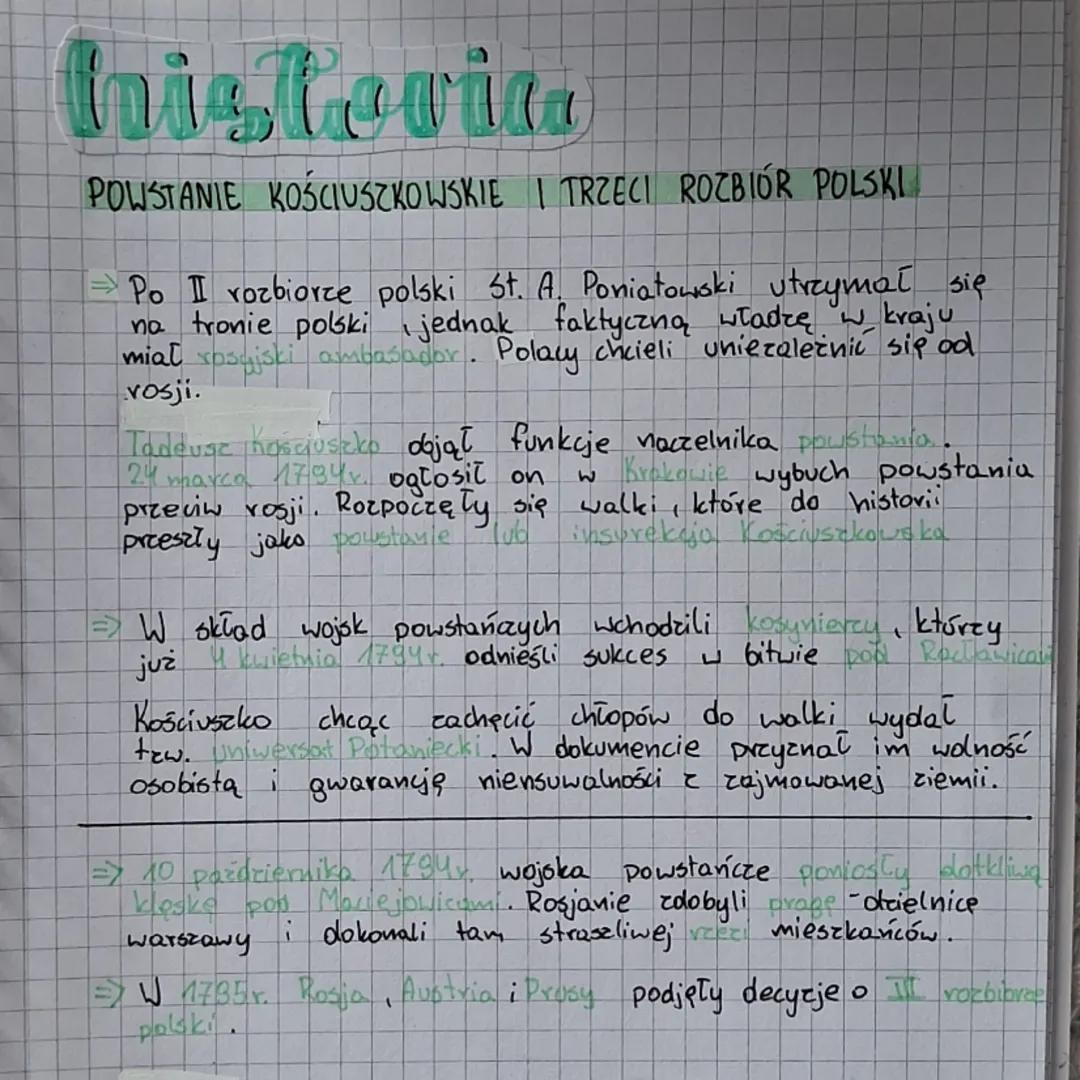 historia
POWSTANIE KOŚCIUSZKOWSKIE I TRZECI ROZBIÓR POLSKI
⇒ Po II rozbiorze polski St. A. Poniatowski utrzymał się
na tronie polski, jednak faktyczną władzę w kraju
miał rosyjski ambasador. Polacy chcieli uniezależnić się od
rosji.
Tadeusz Kościuszko objął funkcje naczelnika powstania.
24 marca 1794r. ogłosił on w Krakowie wybuch powstania
przeciw rosji. Rozpoczęły się walki, które do historii
przeszły jako powstanie lub insurekcja Kościuszkowska
⇒ W skład wojsk powstańczych wchodzili kosynierzy, którzy
już 4 kwietnia 1794r. odnieśli sukces w bitwie pod Racławicami
Kościuszko chcąc zachęcić chłopów do walki wydał
tzw. Uniwersał Połaniecki. W dokumencie przyznał im wolność
osobistą i gwarancję niensuwalności z zajmowanej ziemii.
⇒ 10 października 1794r. wojska powstańcze poniosły dotkliwą
klęskę pod Maciejowicami. Rosjanie zdobyli pragę - dzielnicę
warszawy i dokonali tam straszliwej rzezi mieszkańców.
⇒ W 1795r. Rosja, Austria i Prusy podjęły decyzje o III rozbiorze
polski.